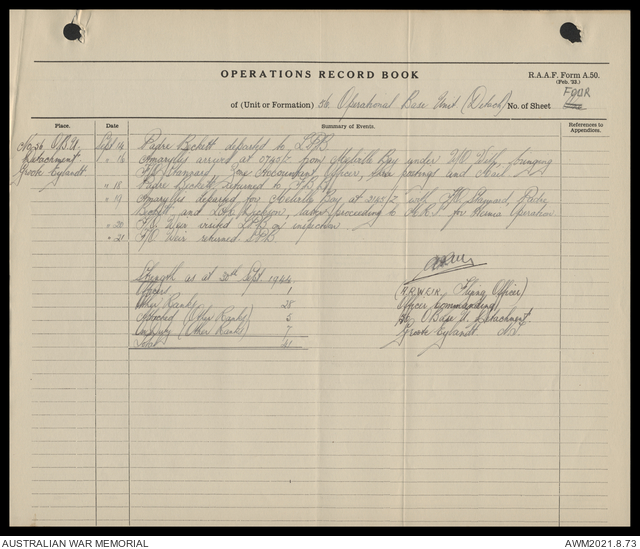 OPERATIONS RECORD BOOK
R.A.A.F. Form A.50.
(Feb. '23.)
FOUR
of (Unit or Formation) 56 Operational Base Unit (Detach) No. of Sheet
Place. Date Summary of Events. References to Appendices.
No 56 O.B.U. Sept 14 Padre Beckett departed to
Detachment " 16 Amaryllis arrived at 0740/Z from Melville Bay under bringing
Groote Eylandt F/O Stannard, Zone Accountant Officer, postings and Mail
" 18 Padre Beckett returned to
" 19 Amaryllis departed for Melville Bay, at with F/O Stannard, Padre
Beckett and latter proceeding to for Hernia Operation
" 20 F/O Weir visited on inspection
" 21 F/O Weir returned
Strength as at 30th Sept 1944
Officers 1
Other Ranks 28
Attached (Other Ranks) 5
(Other Ranks) 7
Total 41
(A.R. WEIR, Flying Officer)
Officer Commanding
56 O Base U. Detachment
Groote Eylandt. N.T.
AUSTRALIAN WAR MEMORIAL
AWM2021.8.73